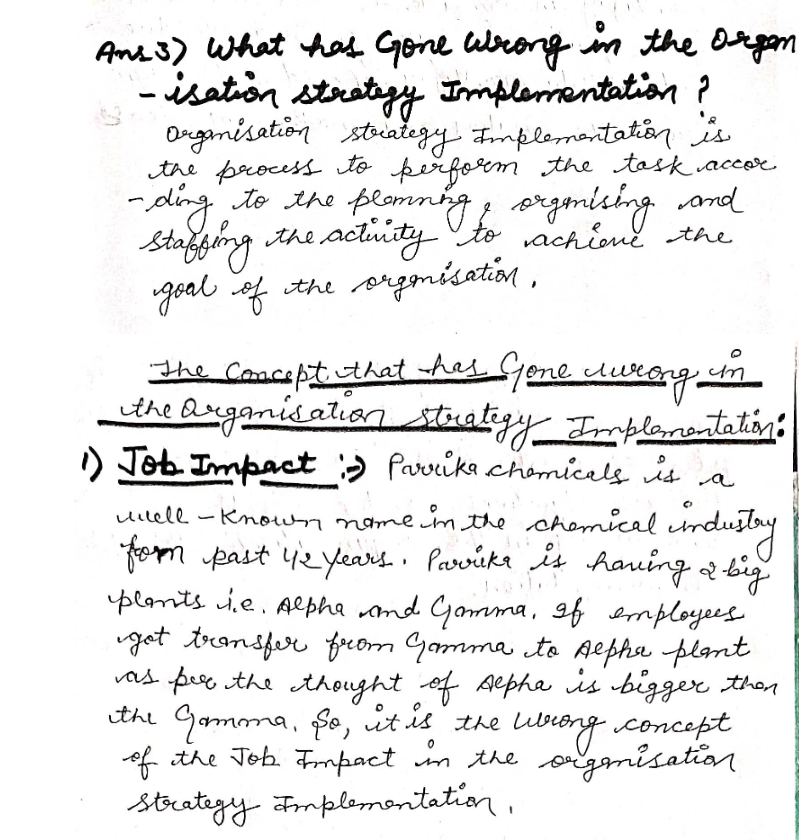 Ans 3) What has Gone Wrong in the Organ
- isation strategy Implementation ?
Organisation strategy Implementation is
the process to perform the task accor
- ding to the planning, organising and
staffing the activity to achieve the
goal of the organisation.
The Concept that has Gone wrong in
the Organisation strategy Implementation:
1) Job Impact :→ Parrika chemicals is a
well - Known name in the chemical industry
form past 42 years. Parrika is having 2 big
plants i.e. Alpha and Gamma. If employees
got transfer from Gamma to Alpha plant
as per the thought of Alpha is bigger than
the Gamma. So, it is the Wrong concept
of the Job Impact in the organisation
strategy Implementation.